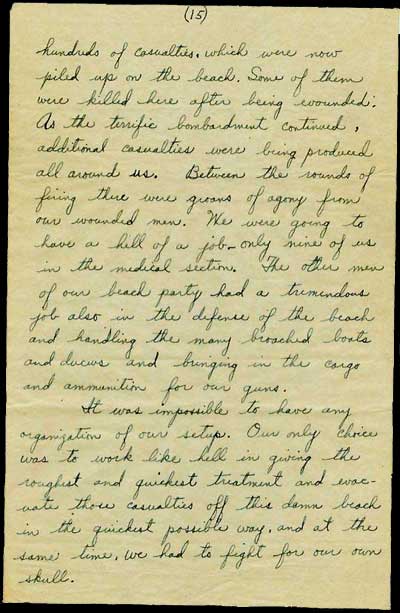 (15)
hundreds of casualties, which were now
piled up on the beach. Some of them
were killed here after being wounded.
As the terrific bombardment continued,
additional casualties were being produced
all around us. Between the rounds of
firing there were groans of agony from
our wounded men. We were going to
have a hell of a job - only nine of us
in the medical section. The other men
of our beach party had a tremendous
job also in the defense of the beach
and handling the many broached boats
and ducws and bringing in the cargo
and ammunition for our guns.
It was impossible to have any
organization of our setup. Our only choice
was to work like hell in giving the
roughest and quickest treatment and evac-
uate those casualties off this damn beach
in the quickest possible way, and at the
same time, we had to fight for our own
skull.